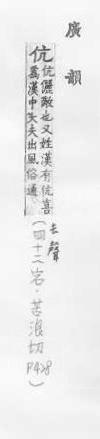 廣韻
伉 伉儷敵也又姓漢有伉喜
爲漢中大夫出風俗通
去聲
(四十二宕·苦浪切
P428)